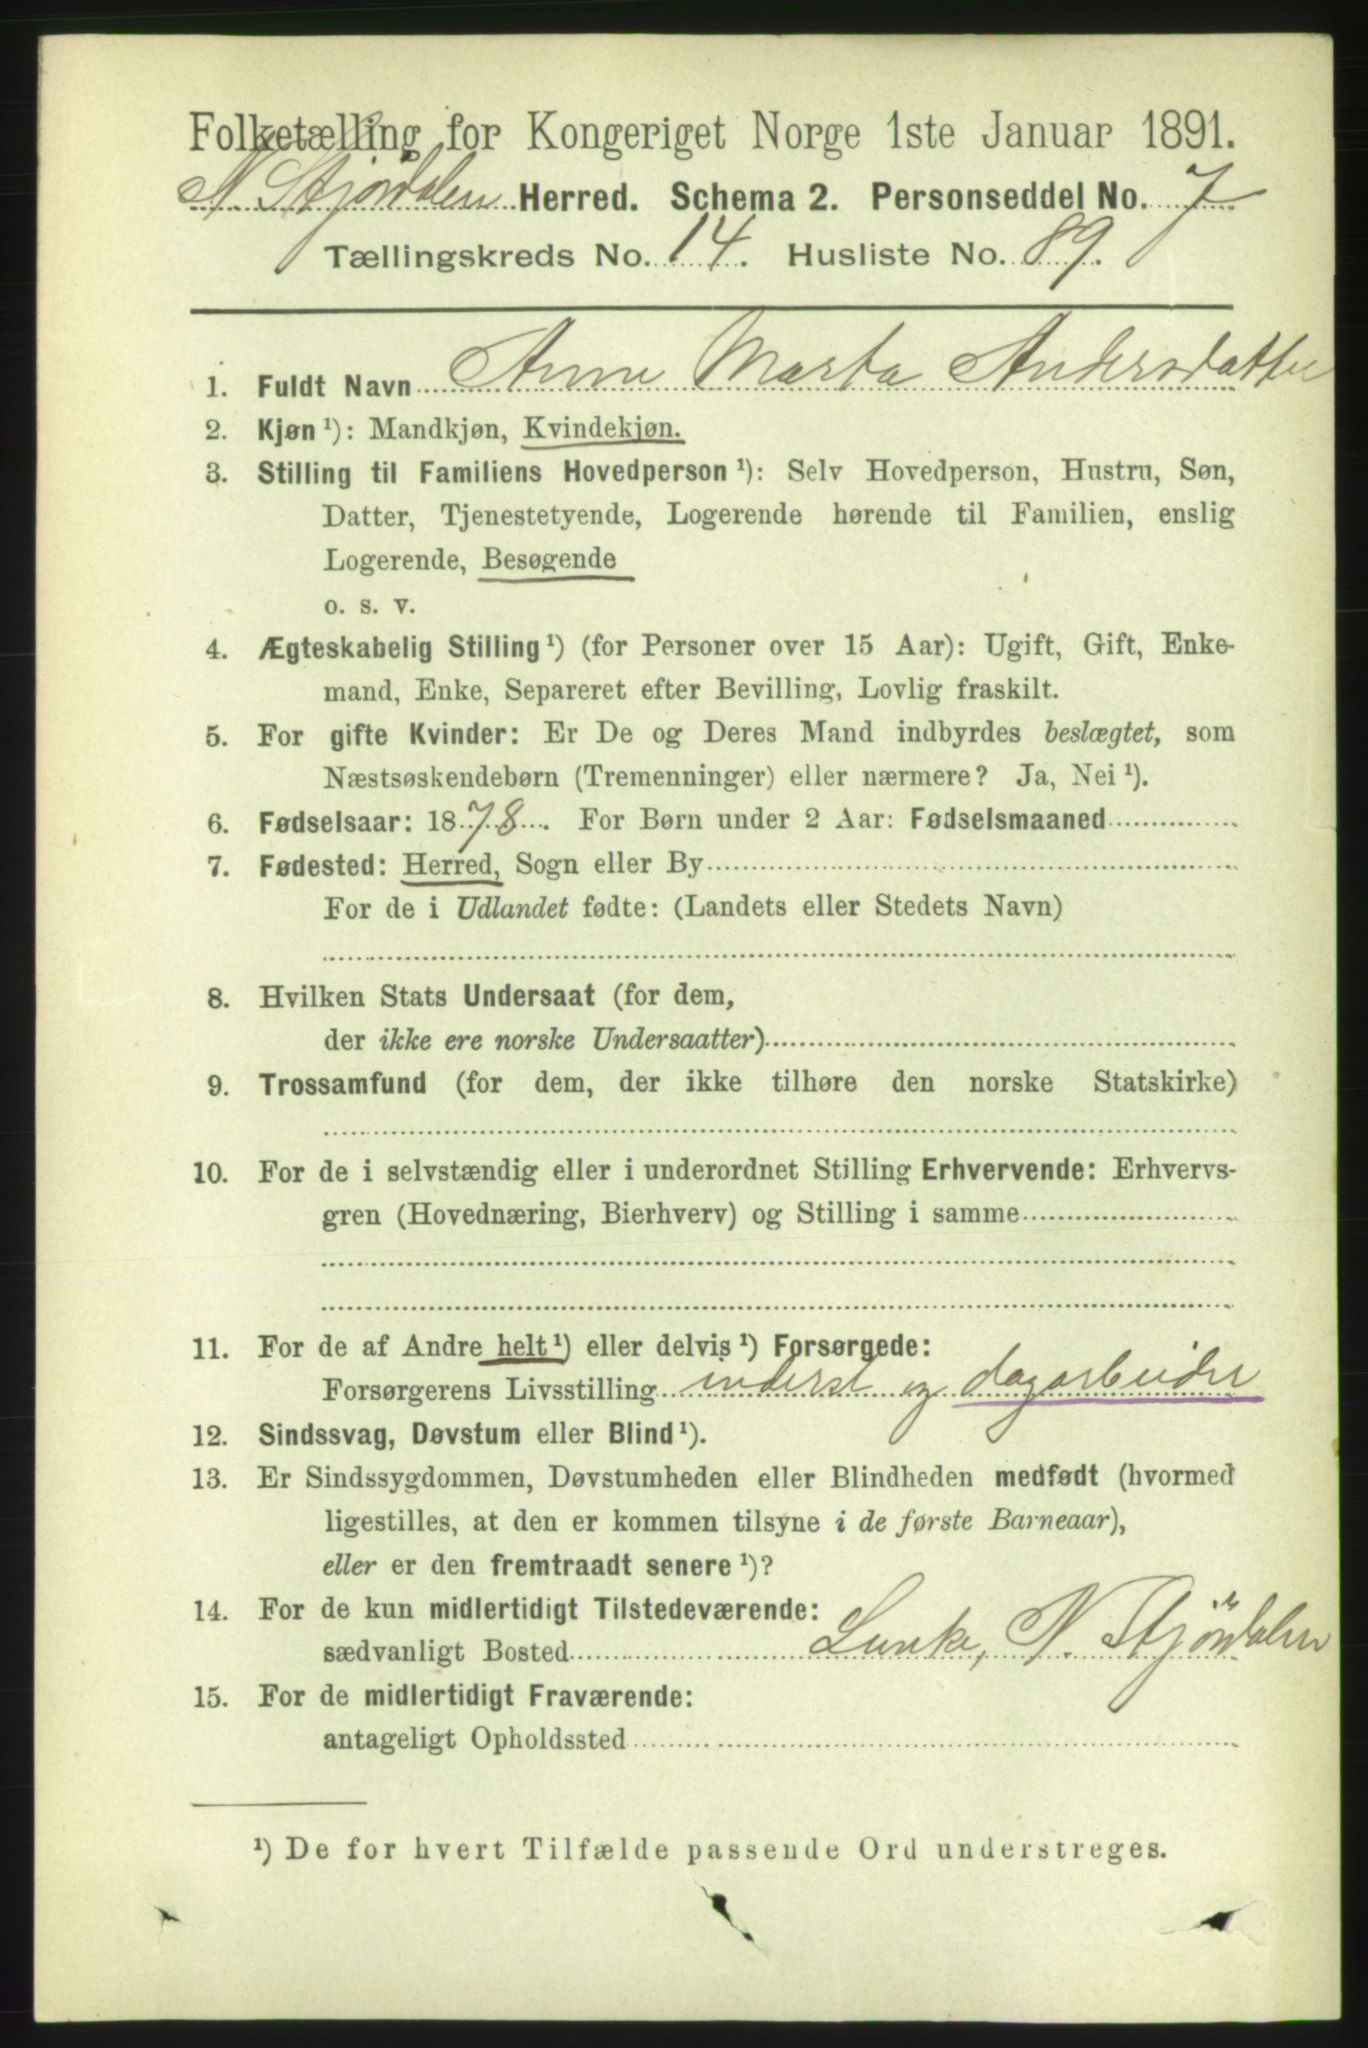 Folketælling for Kongeriget Norge 1ste Januar 1891.
N. Stjørdalen Herred. Schema 2. Personseddel No. 7
Tællingskreds No. 14. Husliste No. 89.
1. Fuldt Navn Anne Marta Andersdatter
2. Kjøn ¹): Mandkjøn, Kvindekjøn.
3. Stilling til Familiens Hovedperson ¹): Selv Hovedperson, Hustru, Søn,
Datter, Tjenestetyende, Logerende hørende til Familien, enslig
Logerende, Besøgende
o. s. v.
4. Ægteskabelig Stilling ¹) (for Personer over 15 Aar): Ugift, Gift, Enke-
mand, Enke, Separeret efter Bevilling, Lovlig fraskilt.
5. For gifte Kvinder: Er De og Deres Mand indbyrdes beslægtet, som
Næstsøskendebørn (Tremenninger) eller nærmere? Ja, Nei ¹).
6. Fødselsaar: 1878. For Børn under 2 Aar: Fødselsmaaned
7. Fødested: Herred, Sogn eller By
For de i Udlandet fødte: (Landets eller Stedets Navn)
8. Hvilken Stats Undersaat (for dem,
der ikke ere norske Undersaatter)
9. Trossamfund (for dem, der ikke tilhøre den norske Statskirke)
10. For de i selvstændig eller i underordnet Stilling Erhvervende: Erhvervs-
gren (Hovednæring, Bierhverv) og Stilling i samme
11. For de af Andre helt ¹) eller delvis ¹) Forsørgede:
Forsørgerens Livsstilling inderst og dagarbeider
12. Sindssvag, Døvstum eller Blind ¹).
13. Er Sindssygdommen, Døvstumheden eller Blindheden medfødt (hvormed
ligestilles, at den er kommen tilsyne i de første Barneaar),
eller er den fremtraadt senere ¹)?
14. For de kun midlertidigt Tilstedeværende:
sædvanligt Bosted Lunke, N. Stjördalen
15. For de midlertidigt Fraværende:
antageligt Opholdssted
¹) De for hvert Tilfælde passende Ord understreges.